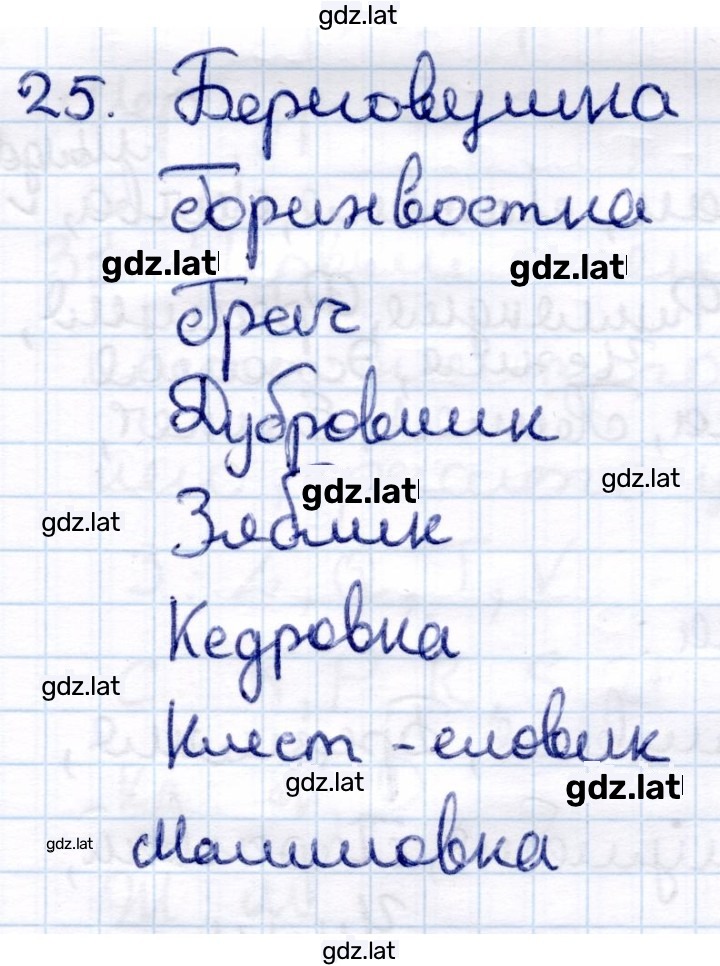 gdz.lat
25. Берновушка
Горихвостка
gdz.lat gdz.lat
Грач
Дубровник
gdz.lat gdz.lat
gdz.lat
Зяблик
Кедровка
gdz.lat
Клест - еловик
gdz.lat gdz.lat
gdz.lat
Малиновка
gdz.lat